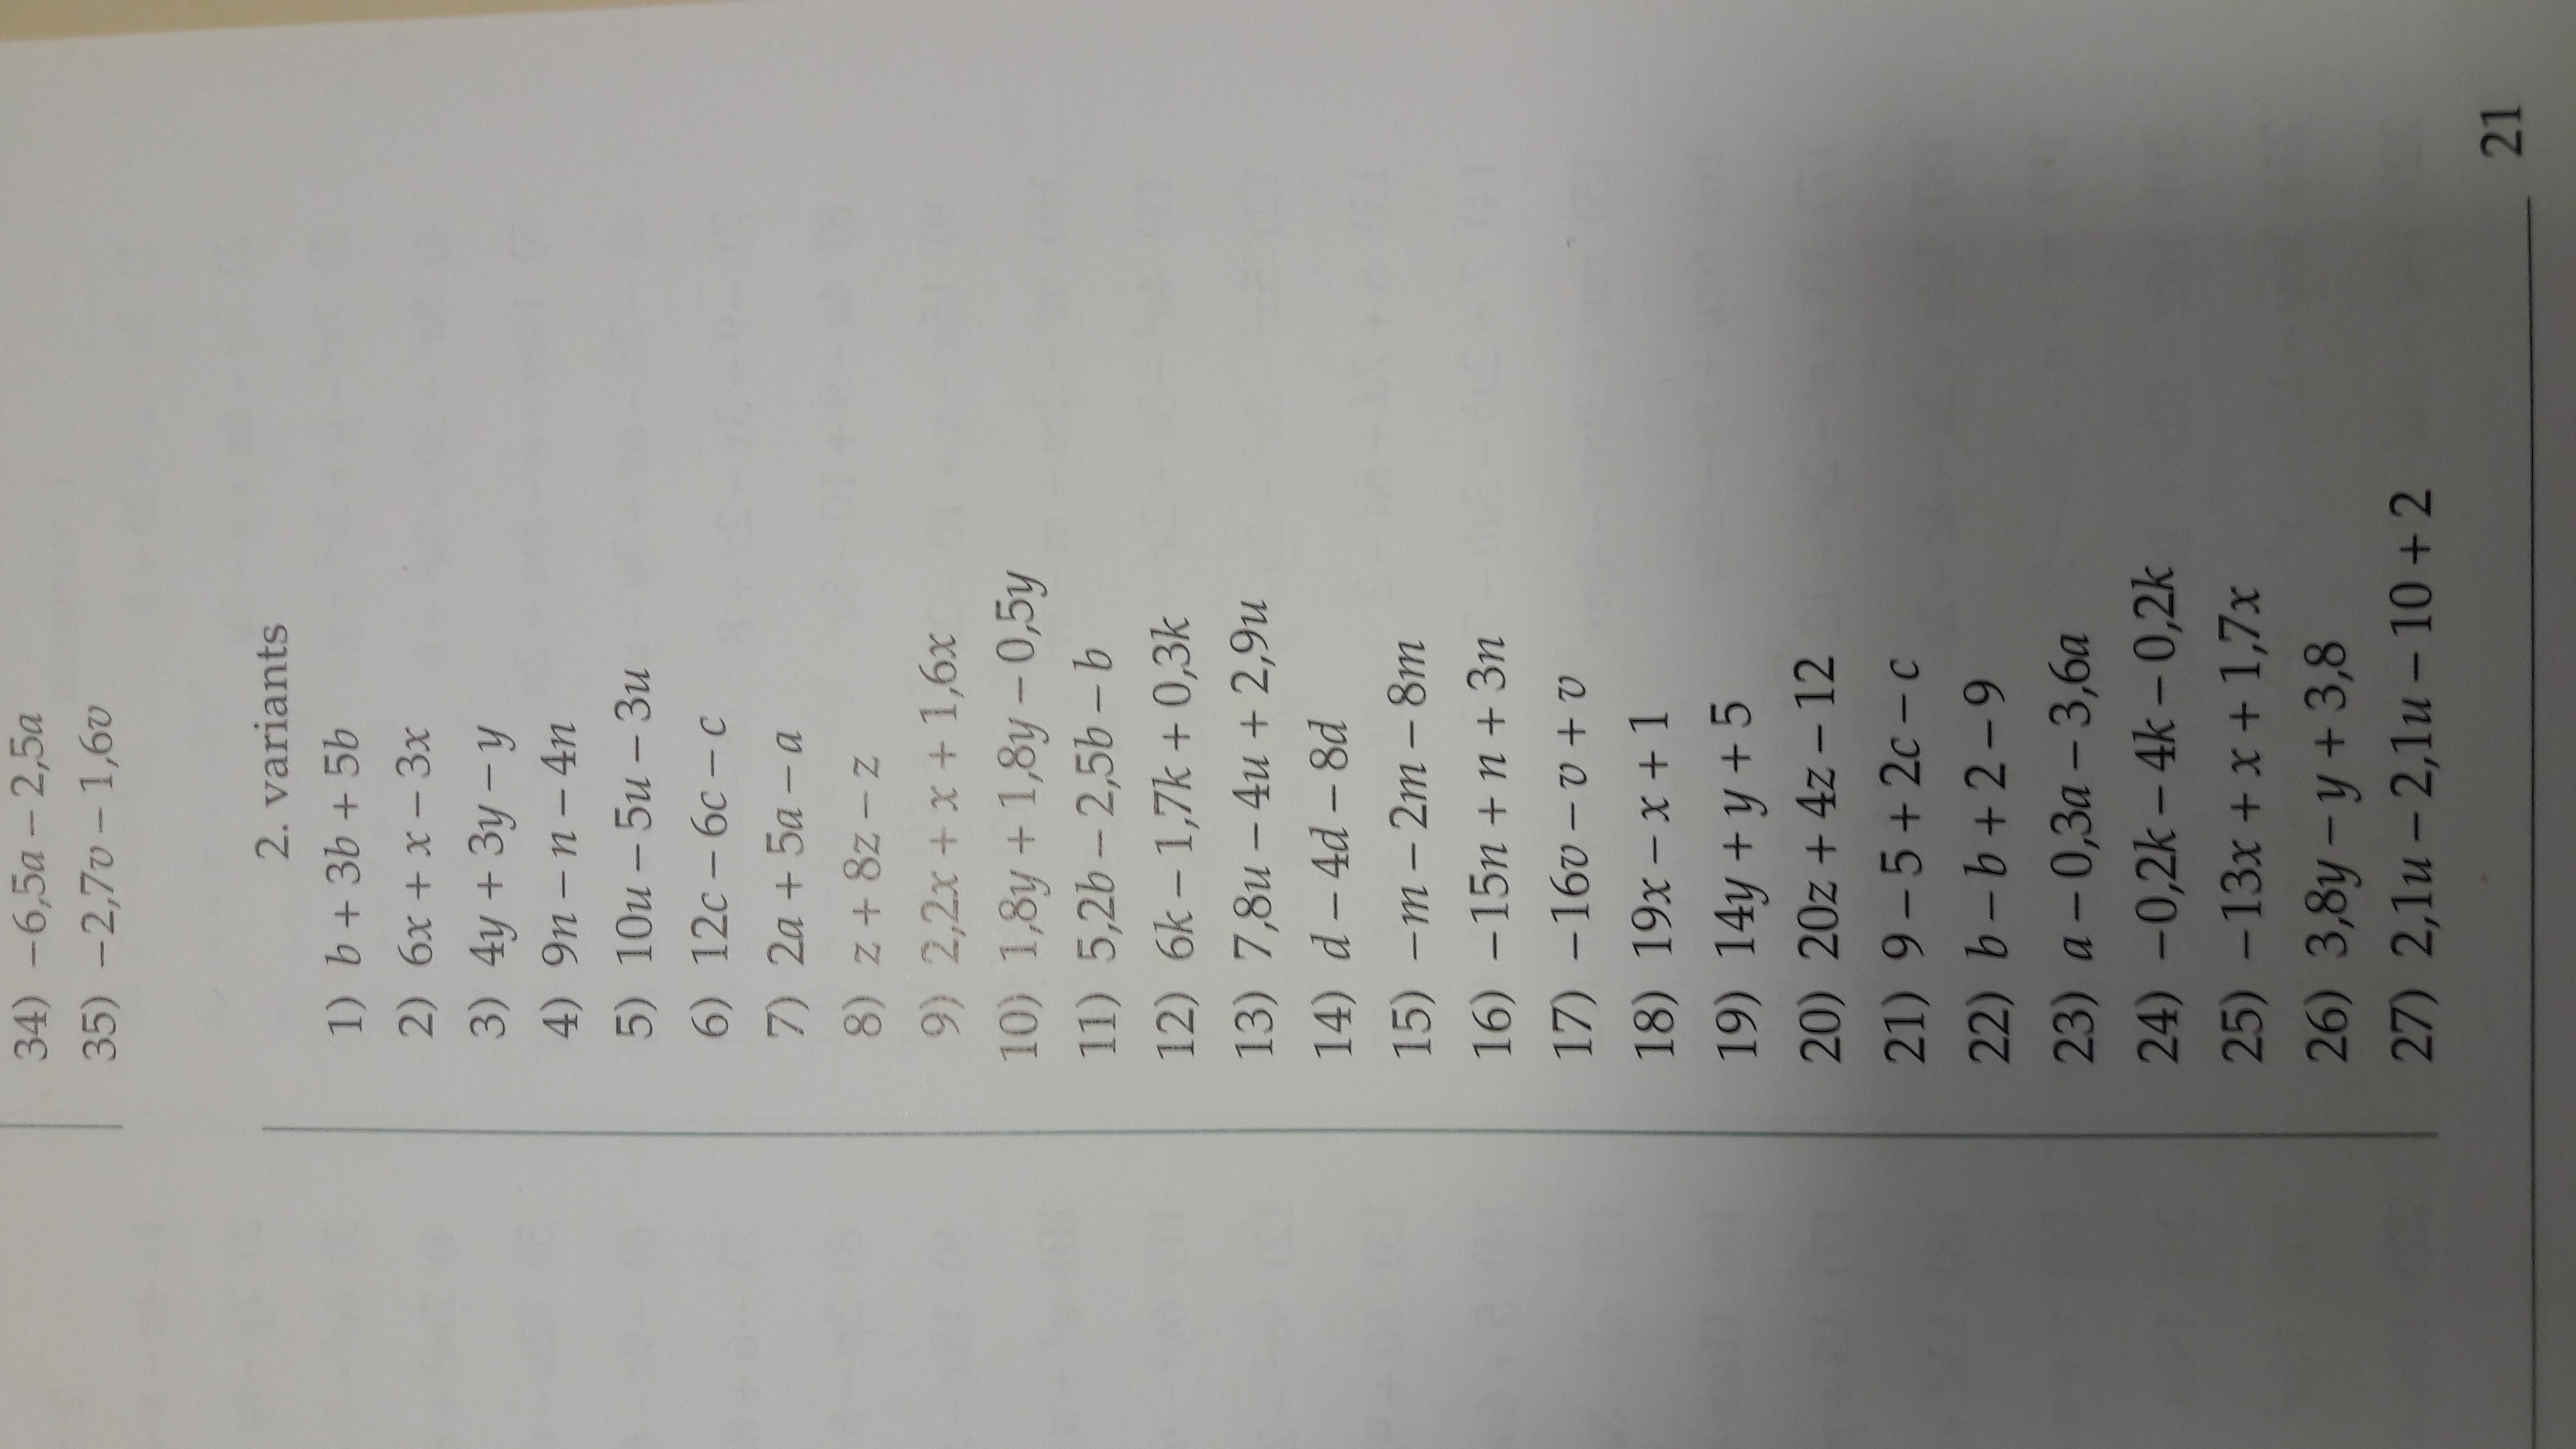 34) −6,5a − 2,5a
35) −2,7v − 1,6v
2. variants
1) b + 3b + 5b
2) 6x + x − 3x
3) 4y + 3y − y
4) 9n − n − 4n
5) 10u − 5u − 3u
6) 12c − 6c − c
7) 2a + 5a − a
8) z + 8z − z
9) 2,2x + x + 1,6x
10) 1,8y + 1,8y − 0,5y
11) 5,2b − 2,5b − b
12) 6k − 1,7k + 0,3k
13) 7,8u − 4u + 2,9u
14) d − 4d − 8d
15) −m − 2m − 8m
16) −15n + n + 3n
17) −16v − v + v
18) 19x − x + 1
19) 14y + y + 5
20) 20z + 4z − 12
21) 9 − 5 + 2c − c
22) b − b + 2 − 9
23) a − 0,3a − 3,6a
24) −0,2k − 4k − 0,2k
25) −13x + x + 1,7x
26) 3,8y − y + 3,8
27) 2,1u − 2,1u − 10 + 2
21